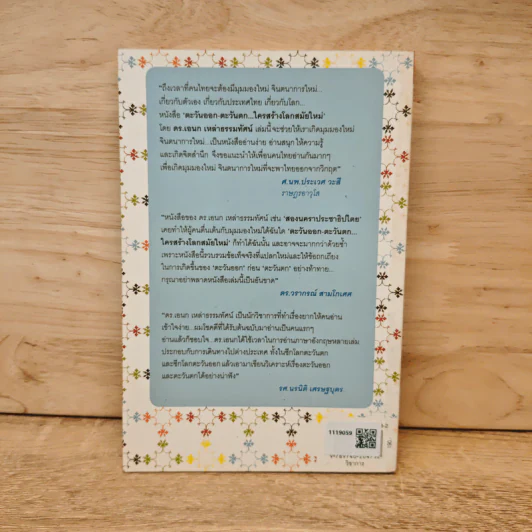 "ถึงเวลาที่คนไทยจะต้องมีมุมมองใหม่ จินตนาการใหม่...
เกี่ยวกับตัวเอง เกี่ยวกับประเทศไทย เกี่ยวกับโลก...
หนังสือ 'ตะวันออก-ตะวันตก...ใครสร้างโลกสมัยใหม่'
โดย ดร.เอนก เหล่าธรรมทัศน์ เล่มนี้จะช่วยให้เราเกิดมุมมองใหม่
จินตนาการใหม่...เป็นหนังสืออ่านง่าย อ่านสนุกให้ความรู้
และเกิดจิตสำนึก จึงขอแนะนำให้เพื่อนคนไทยอ่านกันมากๆ
เพื่อเกิดมุมมองใหม่ จินตนาการใหม่ที่จะพาไทยออกจากวิกฤต"
ศ.นพ.ประเวศ วะสี
ราษฎรอาวุโส
"หนังสือของ ดร.เอนก เหล่าธรรมทัศน์ เช่น 'สองนคราประชาธิปไตย'
เคยทำให้ผู้คนตื่นเต้นกับมุมมองใหม่ได้ฉันใด 'ตะวันออก-ตะวันตก...
ใครสร้างโลกสมัยใหม่' ก็ทำได้ฉันนั้น และอาจจะมากกว่าด้วยซ้ำ
เพราะหนังสือนี้รวบรวมข้อเท็จจริงที่แปลกใหม่และให้ข้อถกเถียง
ในการเกิดขึ้นของ 'ตะวันออก' ก่อน 'ตะวันตก' อย่างท้าทาย...
กรุณาอย่าพลาดหนังสือเล่มนี้เป็นอันขาด"
ดร.วรากรณ์ สามโกเศศ
"ดร.เอนก เหล่าธรรมทัศน์ เป็นนักวิชาการที่ทำเรื่องยากให้คนอ่าน
เข้าใจง่าย...ผมโชคดีที่ได้รับต้นฉบับมาอ่านเป็นคนแรกๆ
อ่านแล้วก็ชอบใจ...ดร.เอนกได้ใช้เวลาในการอ่านภาษาอังกฤษหลายเล่ม
ประกอบกับการเดินทางไปต่างประเทศ ทั้งในซีกโลกตะวันตก
และซีกโลกตะวันออก แล้วเอามาเขียนวิเคราะห์เรื่องตะวันออก
และตะวันตกได้อย่างน่าฟัง"
รศ.นรนิติ เศรษฐบุตร
1119059
วิชาการ